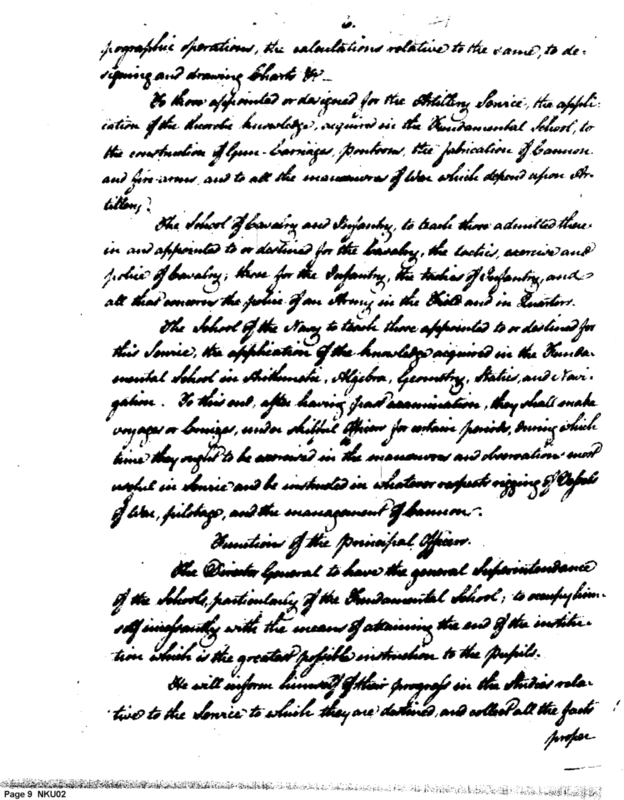 6.
pographic operations, the calculations relative to the same, to de-
signing and drawing Charts &c—
To those appointed or designed for the Artillery Service, the appli-
cation of the theoretic knowledge, acquired in the Fundamental School, to
the construction of Gun-Carriages, pontoons, the fabrication of Cannon
and fire-arms, and to all the maneuvres of War which depend upon Ar-
tillery.
The School of Cavalry and Infantry, to teach those admitted there-
in and appointed to or destined for the Cavalry, the tactics, exercise and
police of Cavalry; those for the Infantry, the tactics of Infantry, and
all that concerns the police of an Army in the Field and in Quarters.
The School of the Navy to teach those appointed to or destined for
this Service, the application of the knowledge acquired in the Funda-
mental School in Arithmetic, Algebra, Geometry, Statics, and Navi-
gation. To this end, after having past examination, they shall make
voyages or Cruizes, under skilful Officers for certain periods, during which
time they ought to be exercised in the maneuvres and observations most
useful in Service and be instructed in whatever respects rigging of Vessels
of War, pilotage, and the management of Cannon.
Function of the principal Officers.
The Director General to have the general Superintendance
of the Schools, particularly of the Fundamental School; to occupy him-
self incessantly with the means of attaining the end of the institu-
tion which is the greatest possible instruction to the Pupils.
He will inform himself of their progress in the Studies rela-
tive to the Service to which they are destined, and collect all the facts
proper
Page 9 NKU02